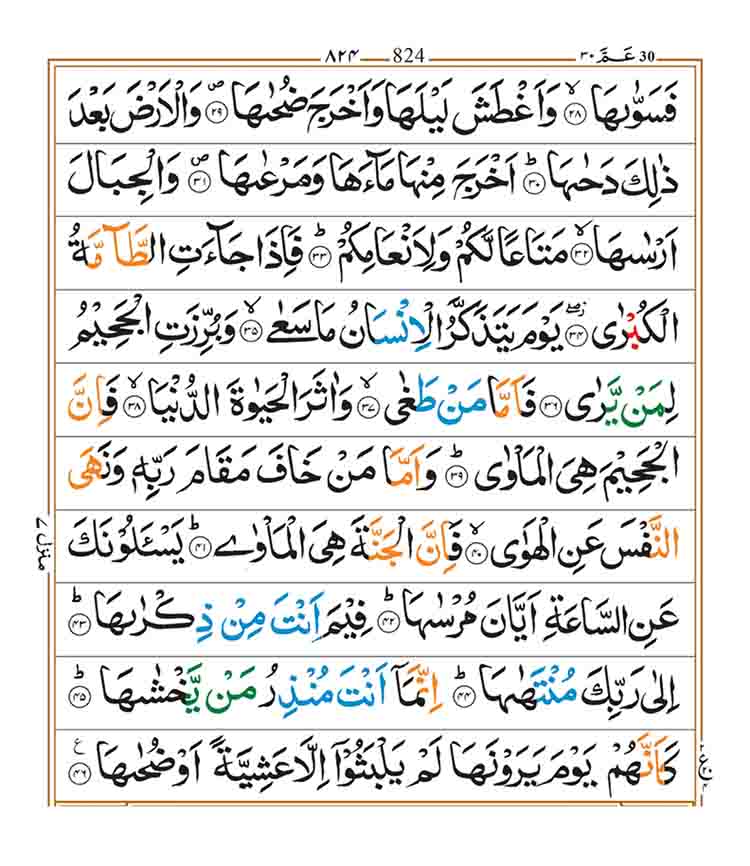 30 عَـمَّ ٣٠ 824 ٨٢٤
فَسَوّٰىهَا ۙ﴿۲۸﴾ وَاَغْطَشَ لَيْلَهَا وَاَخْرَجَ ضُحٰىهَا ۪﴿۲۹﴾ وَالْاَرْضَ بَعْدَ
ذٰلِكَ دَحٰىهَا ؕ﴿۳۰﴾ اَخْرَجَ مِنْهَا مَآءَهَا وَمَرْعٰىهَا ۪﴿۳۱﴾ وَالْجِبَالَ
اَرْسٰىهَا ۙ﴿۳۲﴾ مَتَاعًا لَّكُمْ وَلِاَنْعَامِكُمْ ؕ﴿۳۳﴾ فَاِذَا جَآءَتِ الطَّآمَّةُ
الْكُبْرٰى ۖ﴿۳۴﴾ يَوْمَ يَتَذَكَّرُ الْاِنْسَانُ مَا سَعٰى ۙ﴿۳۵﴾ وَبُرِّزَتِ الْجَحِيْمُ
لِمَنْ يَّرٰى ﴿۳۶﴾ فَاَمَّا مَنْ طَغٰى ۙ﴿۳۷﴾ وَاٰثَرَ الْحَيٰوةَ الدُّنْيَا ۙ﴿۳۸﴾ فَاِنَّ
الْجَحِيْمَ هِىَ الْمَاْوٰى ؕ﴿۳۹﴾ وَاَمَّا مَنْ خَافَ مَقَامَ رَبِّهٖ وَنَهَى
النَّفْسَ عَنِ الْهَوٰى ۙ﴿۴۰﴾ فَاِنَّ الْجَنَّةَ هِىَ الْمَاْوٰے ؕ﴿۴۱﴾ يَسْـَٔلُوْنَكَ
عَنِ السَّاعَةِ اَيَّانَ مُرْسٰىهَا ؕ﴿۴۲﴾ فِيْمَ اَنْتَ مِنْ ذِكْرٰىهَا ؕ﴿۴۳﴾
اِلٰى رَبِّكَ مُنْتَهٰىهَا ؕ﴿۴۴﴾ اِنَّمَآ اَنْتَ مُنْذِرُ مَنْ يَّخْشٰىهَا ؕ﴿۴۵﴾
كَاَنَّهُمْ يَوْمَ يَرَوْنَهَا لَمْ يَلْبَثُوْٓا اِلَّا عَشِيَّةً اَوْ ضُحٰىهَا ﴿۴۶﴾ ع
منزل ٧